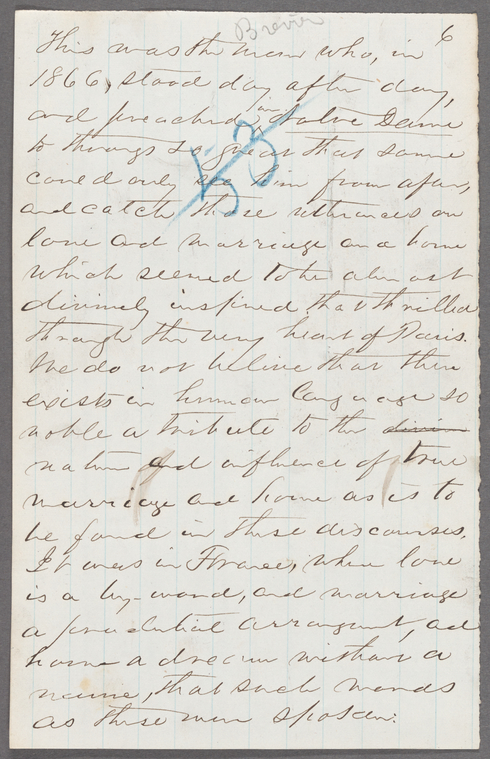 Brevier
6
This was the man who, in
1866, stood day after day,
and preached in Notre Dame
to throngs so great that some
could only see him from afar,
and catch those utterances on
love and marriage and home
which seemed to be almost
divinely inspired that thrilled
through the very heart of Paris.
We do not believe that there
exists in human language so
noble a tribute to the divine
nature and influence of true
marriage and home as is to
be found in these discourses.
It was in France, where love
is a by-word, and marriage
a prudential arrangement, and
home a dream without a
name, that such words
as these were spoken: